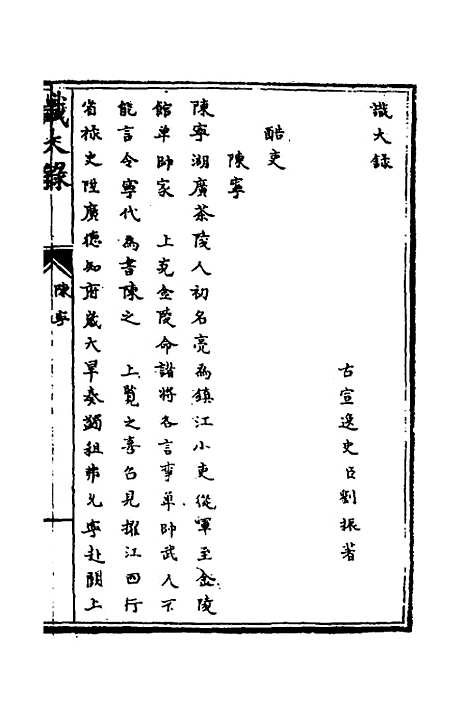 識大錄
古宣逸史臣劉振著
酷吏
陳寧
陳寧湖廣茶陵人初名亮為鎮江小吏從軍至金陵
館單帥家　上克金陵命諸將各言事單帥武人不
能言令寧代為書陳之　上覽之喜召見擢江西行
省掾史陞廣德知府歲大旱奏蠲租弗允寧赴闕上
識大錄
陳寧